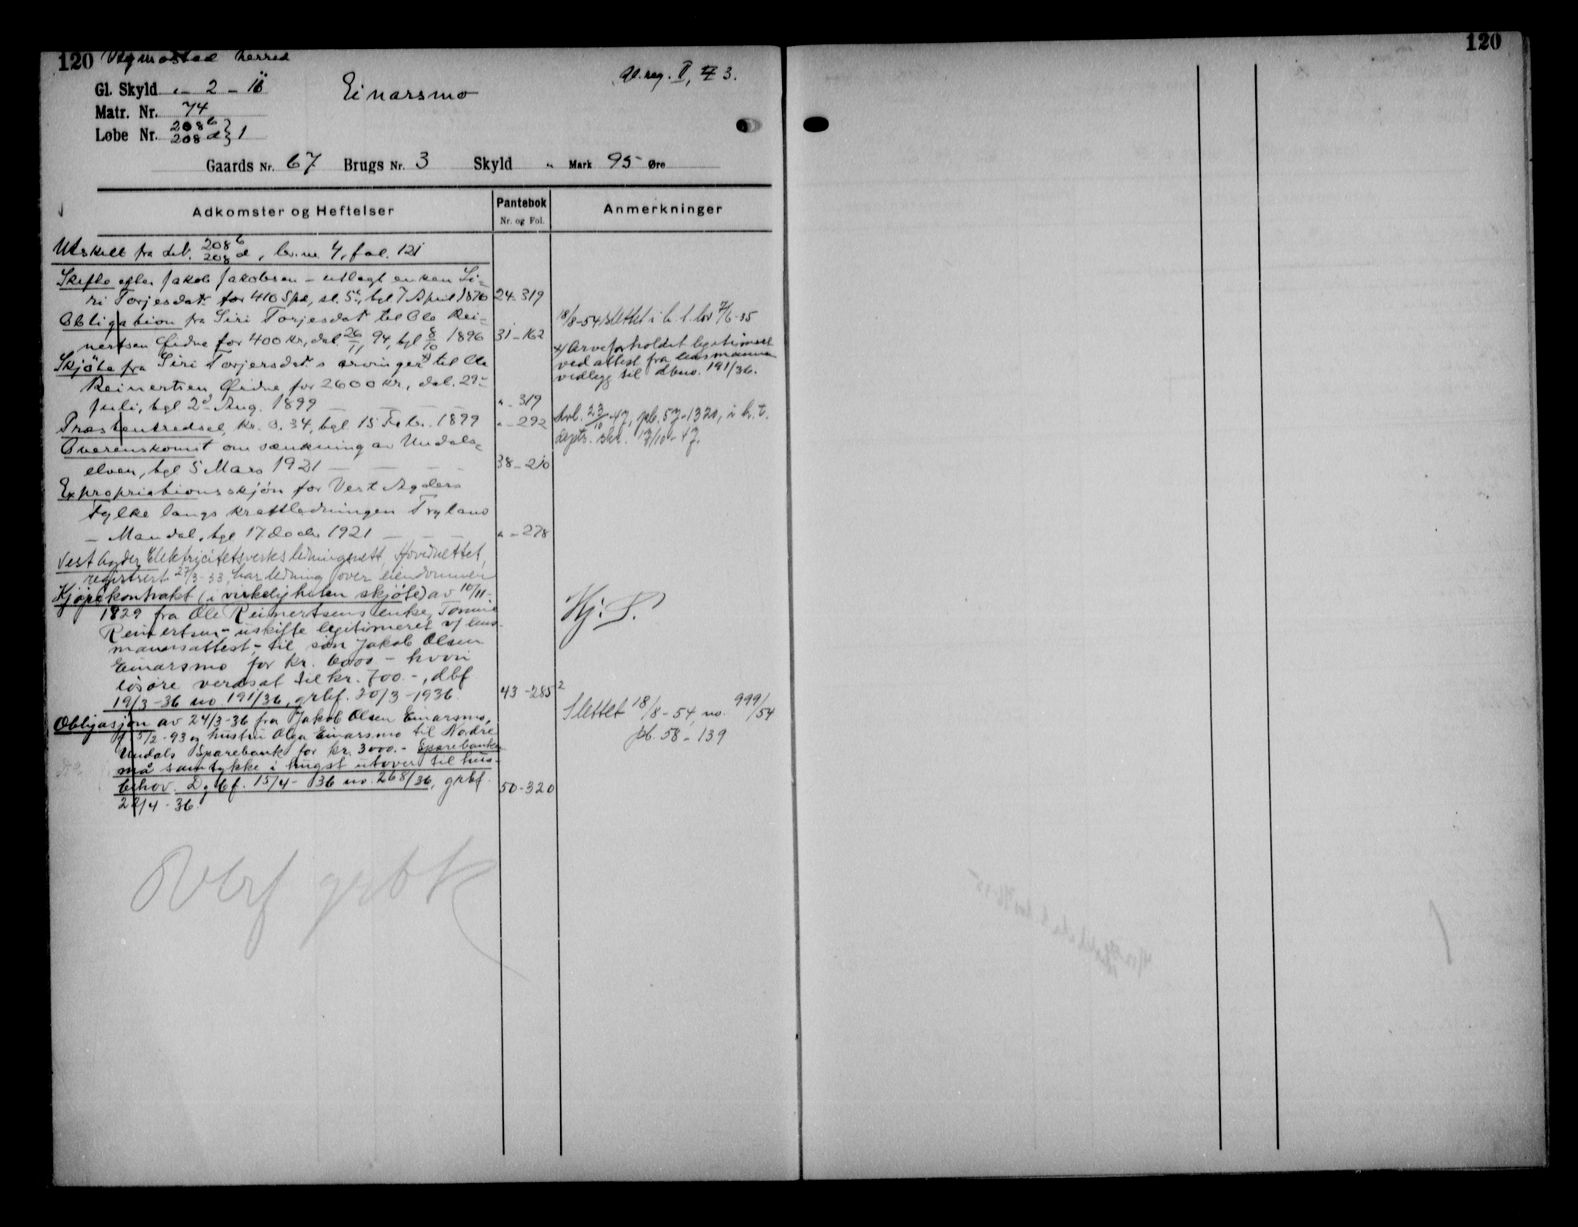 120 Vigmostad herred
Gl. reg. II, 73.
Gl. Skyld „ - 2 - 18
Einarsmo
Matr. Nr. 74
Løbe Nr. 208 b } 1
208 d
Gaards Nr. 67 Brugs Nr. 3 Skyld „ Mark 95 Øre
Adkomster og Heftelser
Pantebok
Nr. og Fol.
Anmerkninger
Utskilt fra 208 b
208 d, br.nr. 4, fol. 121
Skifte efter Jakob Jakobsen - utlagt enken Si-
ri Torjesdat. for 410 Spd, tgl 7 April 1870 24-319
Obligation fra Siri Torjesdat til Ole Rei-
nertsen Øidne for 400 kr, dat 26/11 94, tgl 8/10 1896 31-162
18/8-54 slettet i h. t. lov 7/6-35
Skjöte fra Siri Torjersdat.s arvinger til Ole
Reinertsen Øidne for 2600 kr, dat. 29-
Juli, tgl 2d Aug. 1899 „ - 319
Arveforholdet legitimert
ved attest fra lensmannen
vedlegg til dbno. 191/36.
Præstentredsel, kr. 0.34, tgl 15 Febr. 1899 „ - 292
Avl. 23/10-47, pb. 57-1320, i h. t.
depts. skr. 17/10-47.
Overenskomst om sænkning av Undals-
elven, tgl 5 Mars 1921 38-210
Expropriationsskjøn for Vest Agders
Fylke langs kraftledningen Tryland
- Mandal, tgl 17 Decbr 1921 „ - 278
Vest Agder Elektricitetsverks ledningsnett, Hovednettet,
registrert 27/3-33, har ledning over eiendommen
Kjøpekontrakt (i virkeligheten skjøte) av 10/11-
1929 fra Ole Reinertsens enke, Tomine
Reinertsen - uskifte legitimeret v/ lens-
mannsattest - til søn Jakob Olsen
Einarsmo for kr. 6000 - hvori
løsøre verdsat til kr. 700.-, dbf
19/3-36 no. 191/36, grbf. 20/3-1936. 43-285
Hj: S.
Obligasjon av 24/3-36 fra Jakob Olsen Einarsmo,
f. 5/2-93 og hustru Olga Einarsmo til Nordre
Undals Sparebank for kr. 3000.- Sparebanken
må samtykke i hugst utover til hus-
behov. Dgbf. 15/4-36 no. 268/36, grbf. 50-320
22/4-36.
2
Slettet 18/8-54, no. 999/54
pb. 58-139
Overf grbk
120